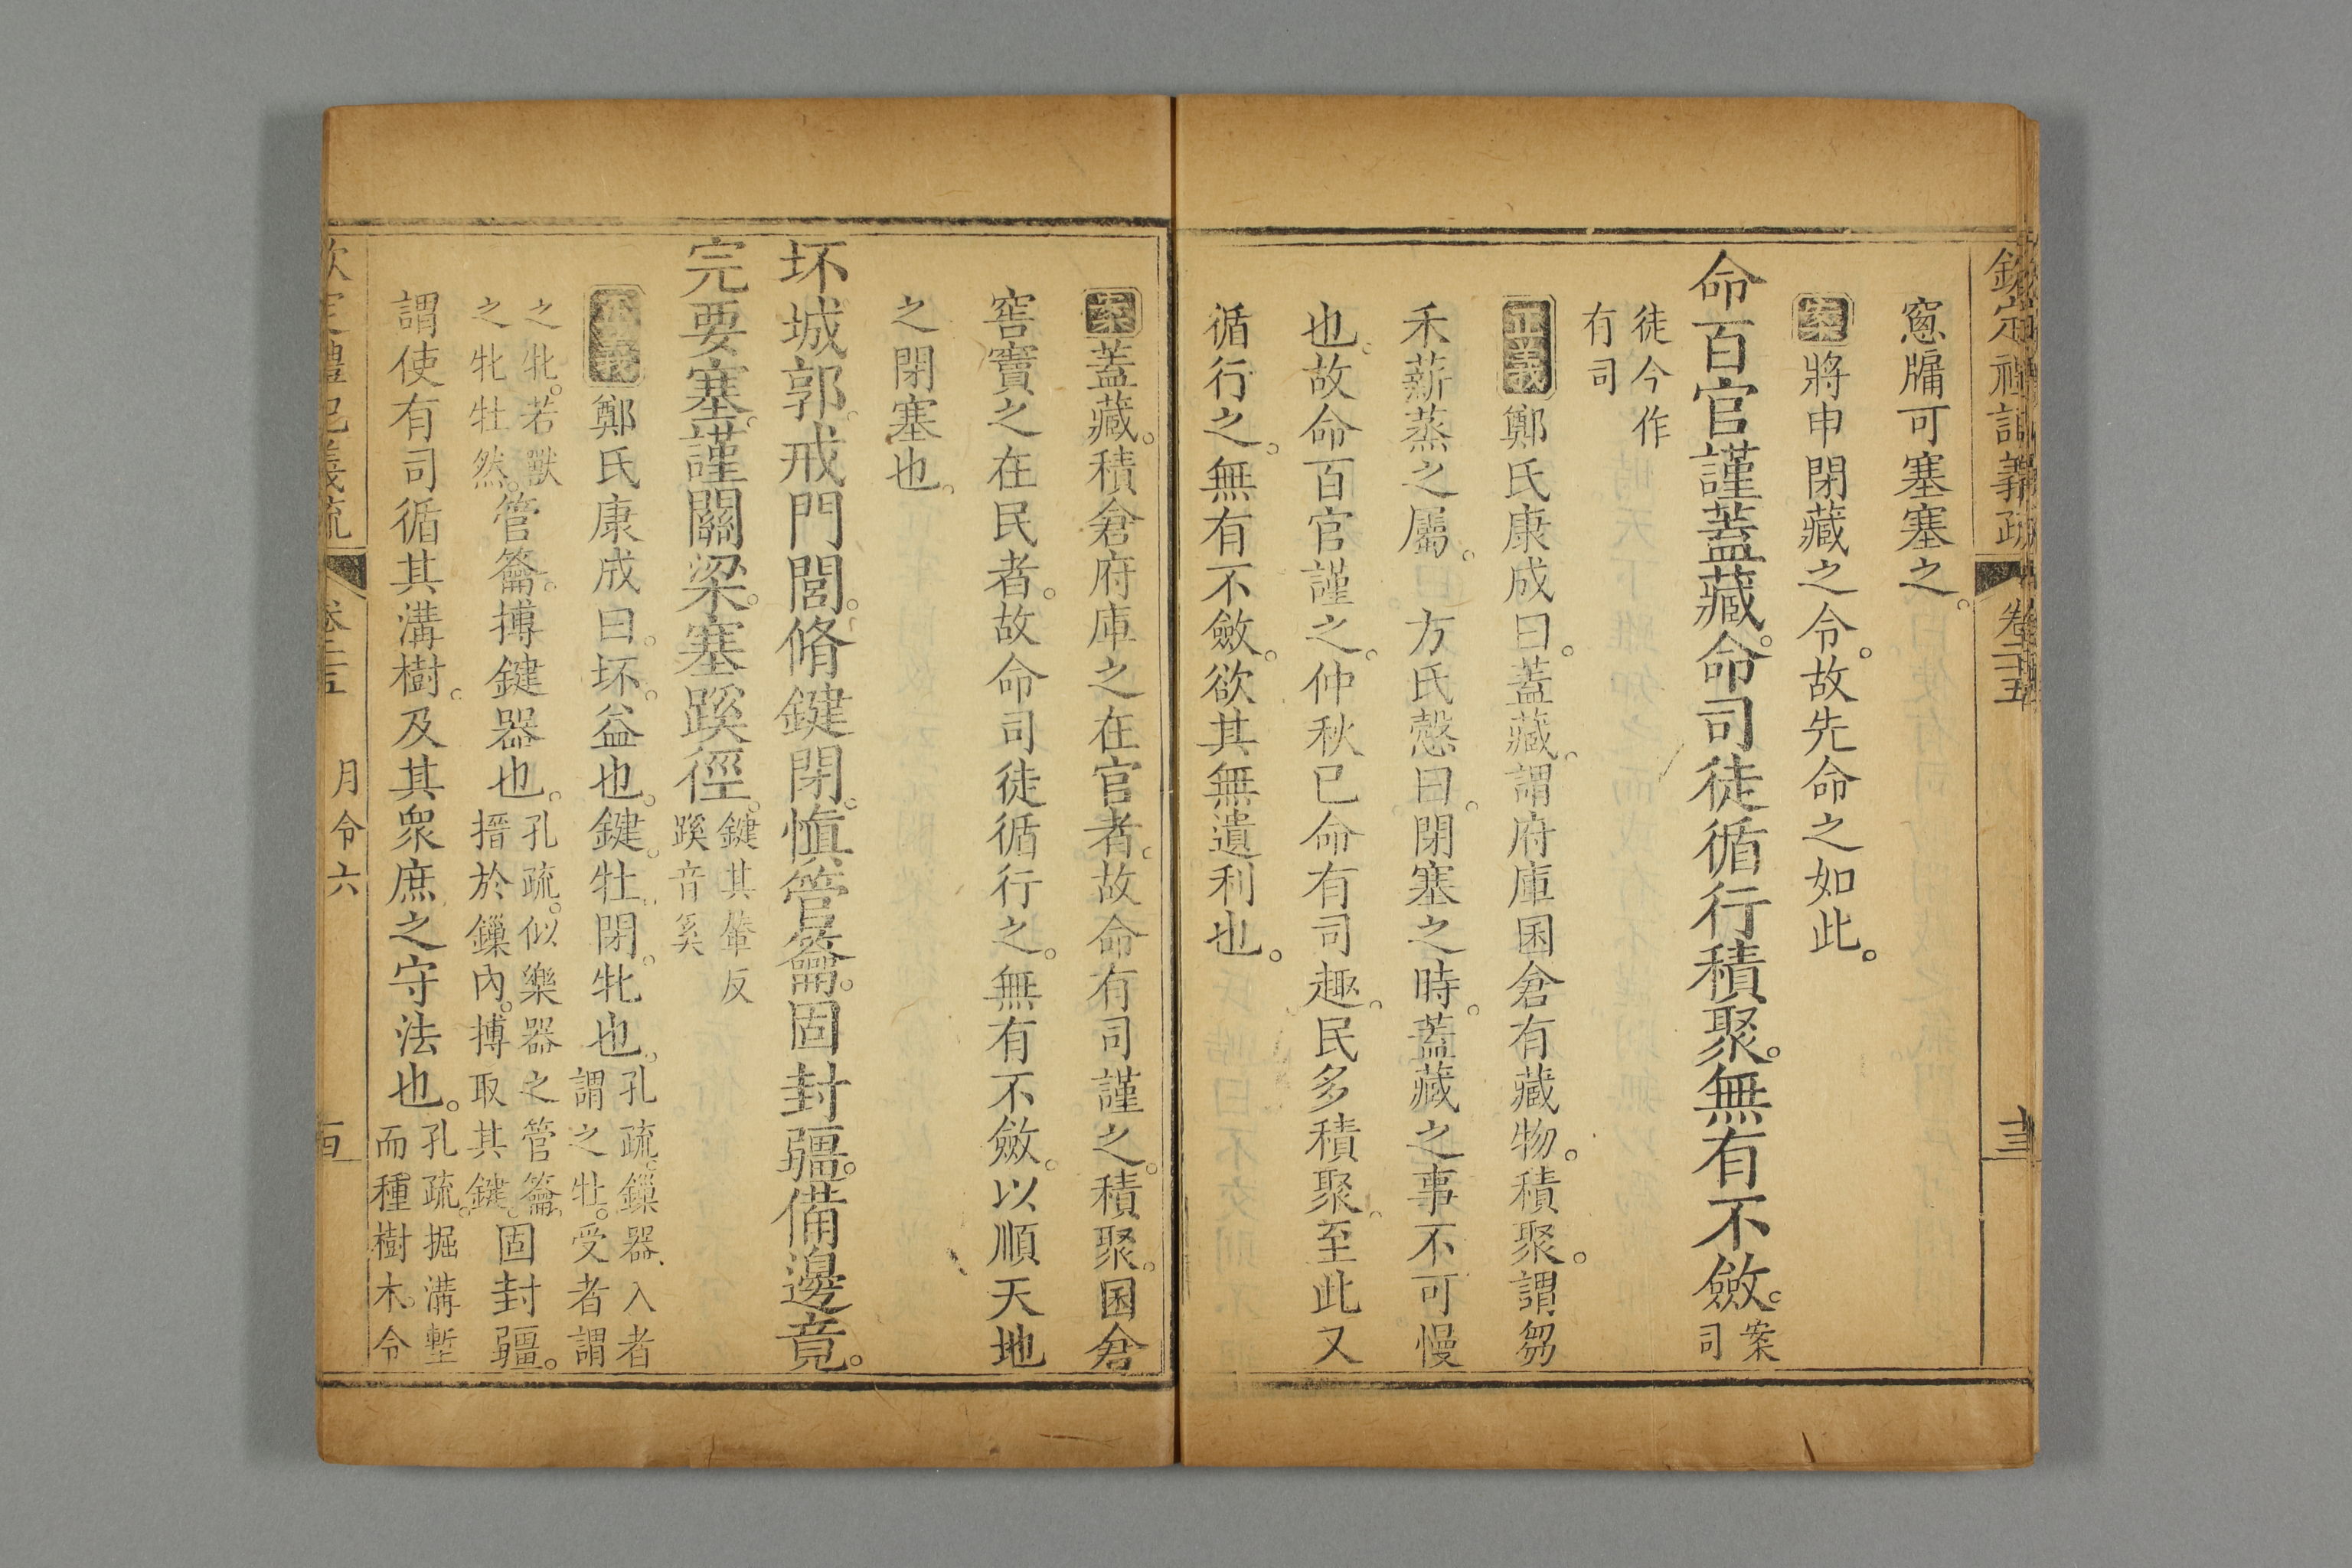 欽定禮記義疏 卷二十五
窻牖可塞塞之。
案將申閉藏之令。故先命之如此。
命百官謹蓋藏。命司徒循行積聚。無有不斂。案司
徒今作
有司
正義鄭氏康成曰。蓋藏。謂府庫囷倉有藏物。積聚。謂芻
禾薪蒸之屬。 方氏慤曰。閉塞之時。蓋藏之事不可慢
也。故命百官謹之。仲秋已命有司趣。民多積聚。至此又
循行之。無有不斂。欲其無遺利也。
案蓋藏。積倉府庫之在官者。故命有司謹之。積聚。囷倉
窖竇之在民者。故命司徒循行之。無有不斂。以順天地
之閉塞也。
坏城郭。戒門閭。脩鍵閉。慎管籥。固封疆。備邊竟。
完要塞。謹關梁。塞蹊徑。鍵其輦反
蹊音奚
正義鄭氏康成曰。坏。益也。鍵。牡。閉。牝也。孔疏。鏁器。入者
謂之牡。受者謂
之牝。若獸
之牝牡然。管籥。搏鍵器也。孔疏。似樂器之管籥。
搢於鏁內。搏取其鍵。固封疆。
謂使有司循其溝樹。及其衆庶之守法也。孔疏。掘溝塹
而種樹木。令
欽定禮記義疏 卷二十五 月令六